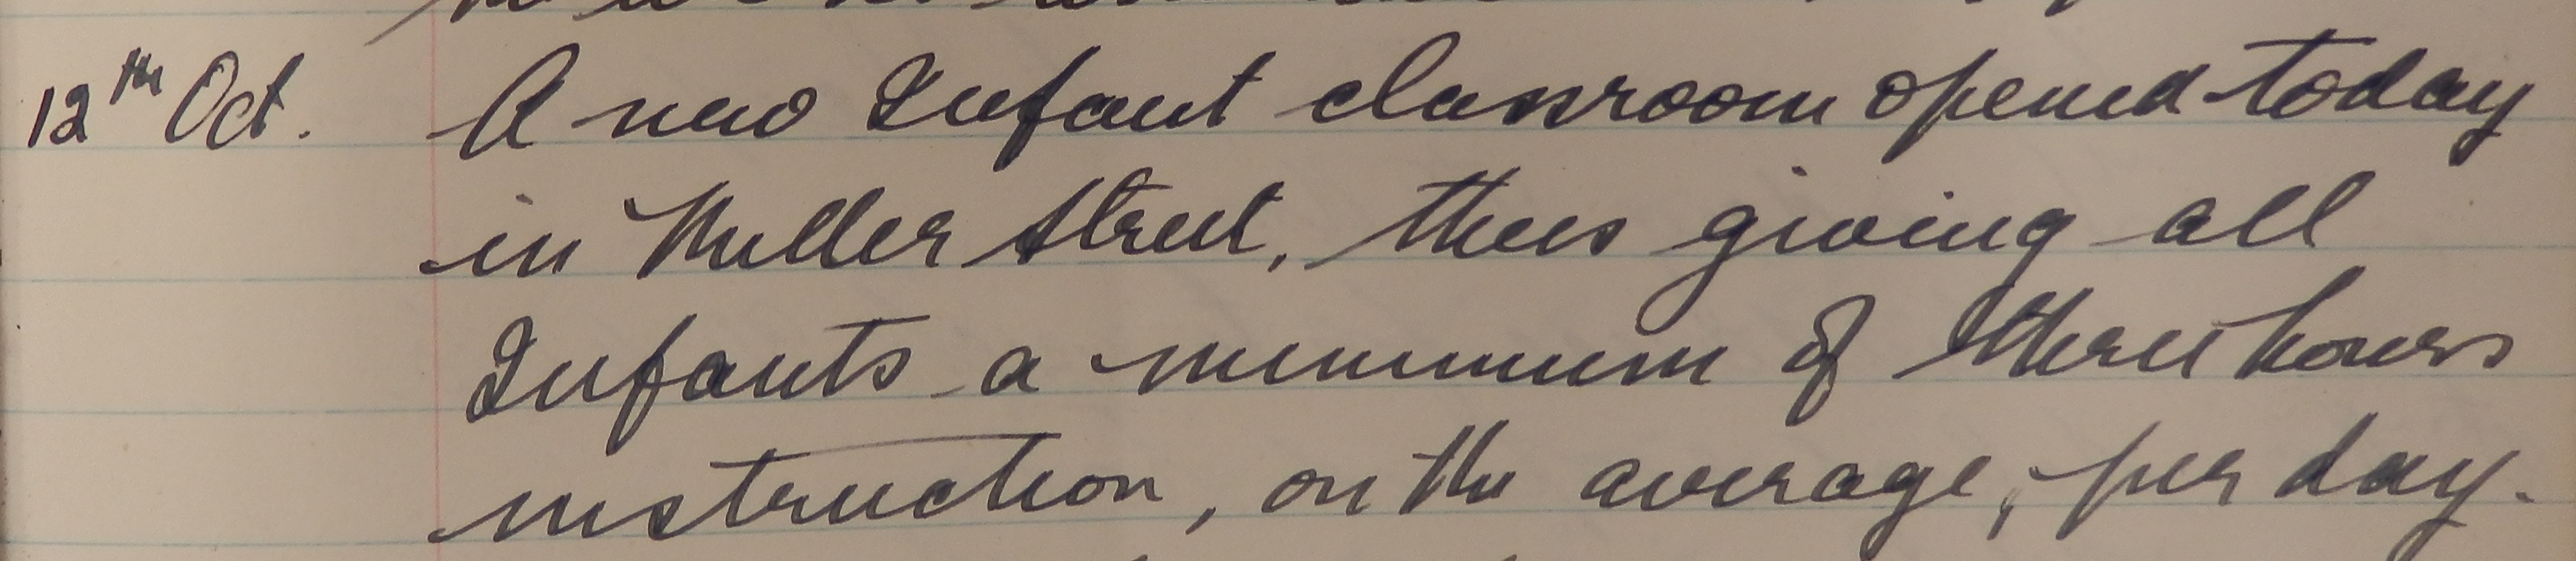 12th Oct. A new Infant classroom opened today
in Muller Street, thus giving all
Infants a minimum of three hours
instruction, on the average, per day.